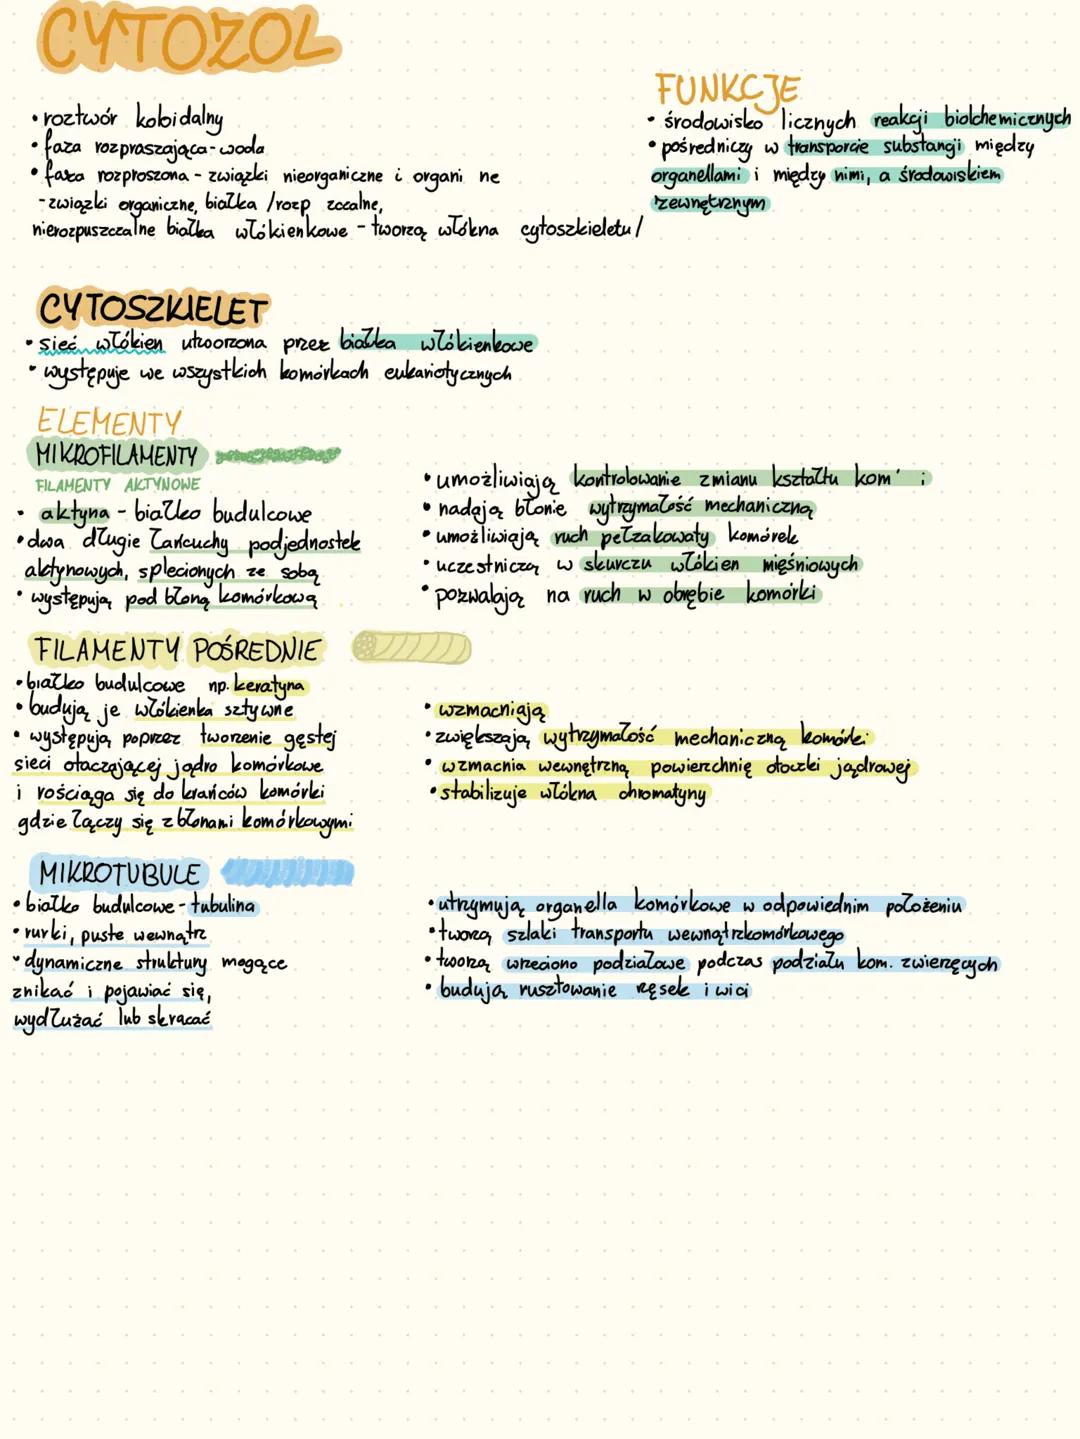 CYTOZOL
• roztwór koloidalny
• faza rozpraszająca - woda
• faza rozproszona - związki nieorganiczne i organi ne
- związki organiczne, białka /rozp zczalne,
nierozpuszczalne białka włókienkowe - tworzą włókna cytoszkieletu/
FUNKCJE
• środowisko licznych reakcji biochemicznych
• pośredniczy w transporcie substancji między
organellami i między nimi, a środowiskiem
zewnętrznym
CYTOSZKIELET
• sieć włókien utworzona przez białka włókienkowe
• występuje we wszystkich komórkach eukariotycznych
ELEMENTY
MIKROFILAMENTY
FILAMENTY AKTYNOWE
• aktyna - białko budulcowe
• dwa długie łańcuchy podjednostek
aktynowych, splecionych ze sobą
• występują pod błoną komórkową
• umożliwiają kontrolowanie zmianu kształtu kom i
• nadają błonie wytrzymałość mechaniczną
• umożliwiają ruch pełzakowaty komórek
• uczestniczą w skurczu włókien mięśniowych
• pozwalają na ruch w obrębie komórki
FILAMENTY POŚREDNIE
• białko budulcowe np. keratyna
• budują je włókienka sztywne
• występują poprzez tworzenie gęstej
sieci otaczającej jądro komórkowe
i rościąga się do krańców komórki
gdzie łączy się z błonami komórkowymi
• wzmacniają
• zwiększają wytrzymałość mechaniczną komórki
• wzmacnia wewnętrzną powierzchnię otoczki jądrowej
• stabilizuje włókna chromatyny
MIKROTUBULE
• białko budulcowe - tubulina
• rurki, puste wewnątrz
• dynamiczne struktury mogące
znikać i pojawiać się,
wydłużać lub skracać
• utrzymują organella komórkowe w odpowiednim położeniu
• tworzą szlaki transportu wewnątrzkomórkowego
• tworzą wrzeciono podziałowe podczas podziału kom. zwierzęcych
• budują rusztowanie rzęsek i wici